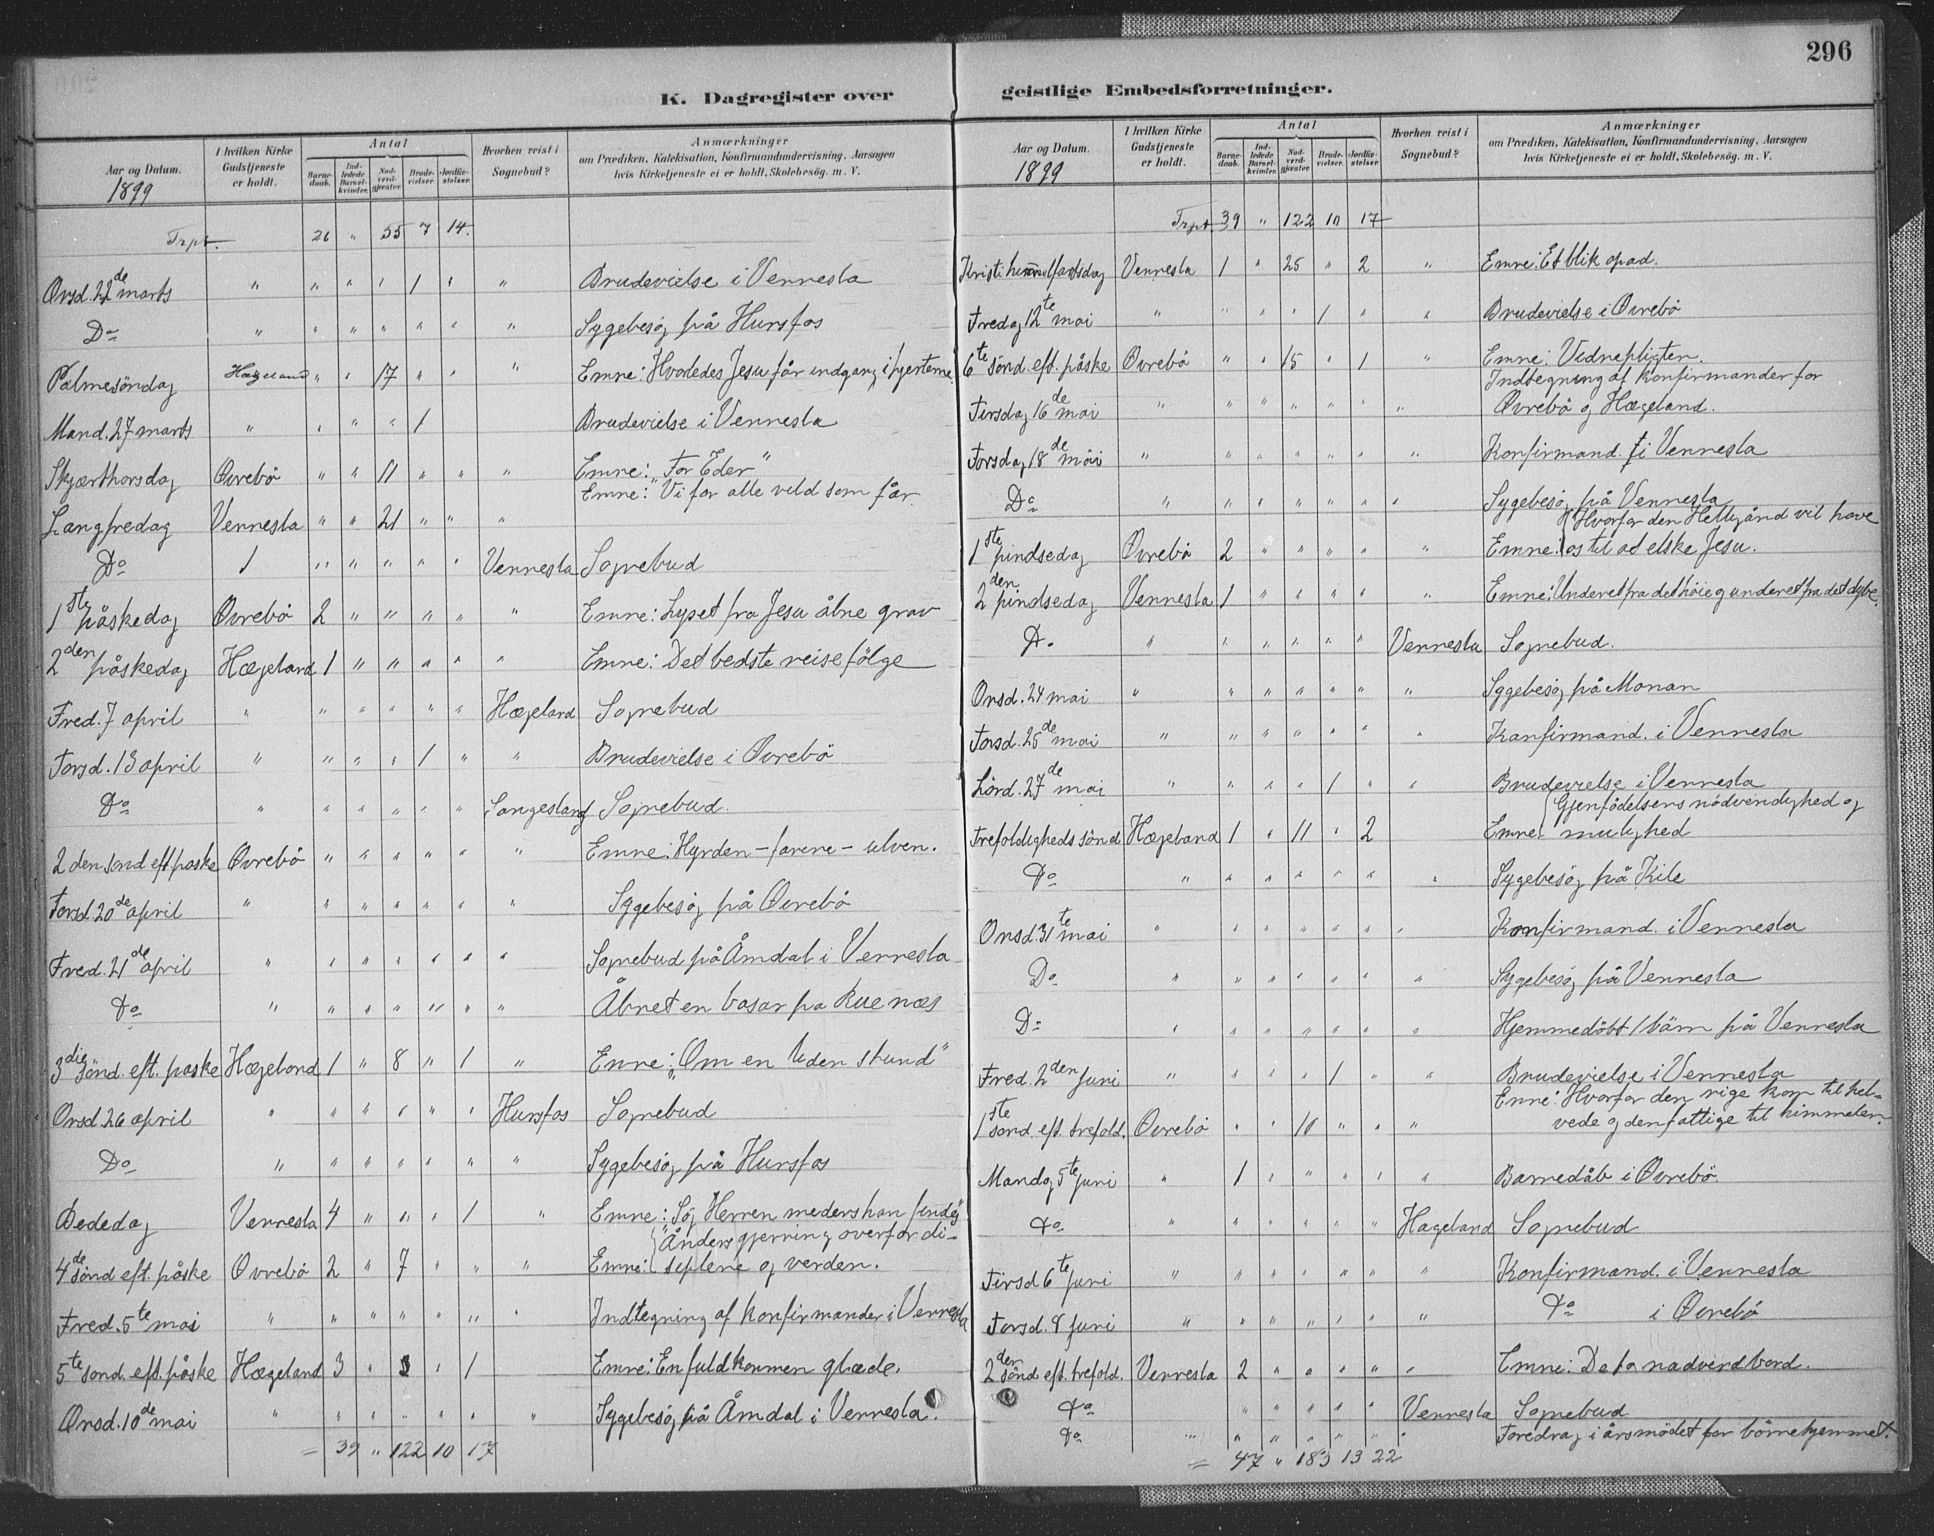 296
K. Dagregister over geistlige Embedsforretninger.
Aar og Datum. 1899
I hvilken Kirke Gudstjeneste er holdt.
Antal
Barne-daab.
Ind-ledede Barsel-kvinder.
Nad-verd-gjester.
Brude-vielser.
Jordfæ-stelser.
Hvorhen reist i Sognebud?
Anmærkninger om Prædiken, Katekisation, Konfirmandundervisning, Aarsagen hvis Kirketjeneste ei er holdt, Skolebesög. m. V.
Trpt. 26 " 55 7 14.
Onsd. 22de marts " " " " 1 " " Brudevielse i Vennesla
Do " " " " " " " Sygebesøg på Hunsfos
Palmesöndag Hægeland " " 17 " " " Emne: Hvorledes Jesu får indgang i hjerterne
Mand. 27 marts " " " " 1 Brudevielse i Vennesla
Skjærthorsdag Øvrebö " " 11 " " " Emne: "For Eder"
Langfredag Vennesla " " 21 " " " Emne: "Vi for alle vild som får
Do " " " " " Vennesla Sognebud
1ste påskedag Øvrebö 2 " " " " " Emne: Lyset fra Jesu åbne grav
2den påskedag Hægeland 1 " " " " " Emne: Det bedste reisefölge
Fred. 7 april " " " " " " Hægeland Sognebud
Torsd. 13 april " " " " 1 " " Brudevielse i Øvrebö
Do " " " " " " Sangesland Sognebud.
2den sönd eft påske Øvrebö " " " " " " Emne: Hyrden - farene - ulven.
Torsd. 20de april " " " " " " " Sygebesög på Øvrebö
Fred. 21de april " " " " " " " Sognebud på Åmdal i Vennesla
Do " " " " " " " Åbnet en basar på Ruenæs
3die sönd. eft. påske Hægeland 1 " 8 " 1 " Emne: "Om en liden stund"
Onsd. 26 april " " " " " " Hunsfos Sognebud
Do " " " " " " " Sygebesög på Hunsfos
Bededag Vennesla 4 " " " 1 " Emne: Søg Herren medens han findes
4de sönd eft. påske Øvrebö 2 " 7 " " " Emne: { Åndens gjerning overfor di-
seplene og verden.
Fred. 5te mai " " " " " " " Indtegning af konfirmander i Vennesla
5te sond. eft. påske Hægeland 3 " 3 " 1 Emne: En fuldkommen glæde.
Onsd. 10de mai " " " " " " " Sygebesög på Åmdal i Vennesla.
= 39 " 122 10 17
Aar og Datum. 1899
I hvilken Kirke Gudstjeneste er holdt.
Antal
Barne-daab.
Ind-ledede Barsel-kvinder.
Nad-verd-gjester.
Brude-vielser.
Jordfæ-stelser.
Hvorhen reist i Sognebud?
Anmærkninger om Prædiken, Katekisation, Konfirmandundervisning, Aarsagen hvis Kirketjeneste ei er holdt, Skolebesög. m. V.
Trpt. 39 " 122 10 17
Kristi himmelfartsdag Vennesla 1 " 25 " 2 " Emne: Et blik opad.
Fredag 12te mai " " " " 1 " " Brudevielse i Øvrebö
6te sönd. eft. påske Øvrebö " " 15 " 1 " Emne: Vidnepligten.
Tirsdag 16de mai " " " " " " " Indtegning af konfirmander for
Øvrebö og Hægeland.
Torsdag 18de mai " " " " " " " Konfirmand. i Vennesla
Do " " " " " " " Sygebesög på Vennesla
1ste pindsedag Øvrebö 2 " " " " " Emne: { Hvorfor den Helligånd vil have
os til at elske Jesu.
2den pindsedag Vennesla 1 " " " " " Emne: Underet fra det höie og underet fra det dybe.
Do " " " " " " Vennesla Sognebud.
Onsd. 24 mai " " " " " " " Sygebesög på Monan
Torsd. 25de mai " " " " " " " Konfirmand. i Vennesla
Lörd. 27de mai " " " " 1 " " Brudevielse i Vennesla
Trefoldigheds sönd Hægeland 1 " 11 " 2 Emne: { Gjenfödelsens nödvendighed og
mulighed
Do " " " " " " " Sygebesög på Kile
Onsd. 31te mai " " " " " " " Konfirmand. i Vennesla
Do " " " " " " " Sygebesög på Vennesla
Do " " " " " " " Hjemmedöbt 1 barn på Vennesla
Fred. 2den Juni " " " " 1 " " Brudevielse i Vennesla
1ste sond. eft. trefold. Øvrebö " " 10 " " " Emne: Hvorfor den rige kom til hel-
vede og den fattige til himmelen.
Mandag 5te Juni " 1 " " " " " Barnedåb i Øvrebö.
Do " " " " " " Hægeland Sognebud
Tirsd 6te Juni " " " " " " " Konfirmand. i Vennesla
Torsd. 8 Juni " " " " " " " Do i Øvrebö
2den sönd eft. trefold. Vennesla 2 " " " " " Emne: De to nadverdbord.
Do " " " " " Vennesla Sognebud
Do " " " " " " " Foredrag i årsmödet for börnehjemmet.
= 47 " 183 13 22